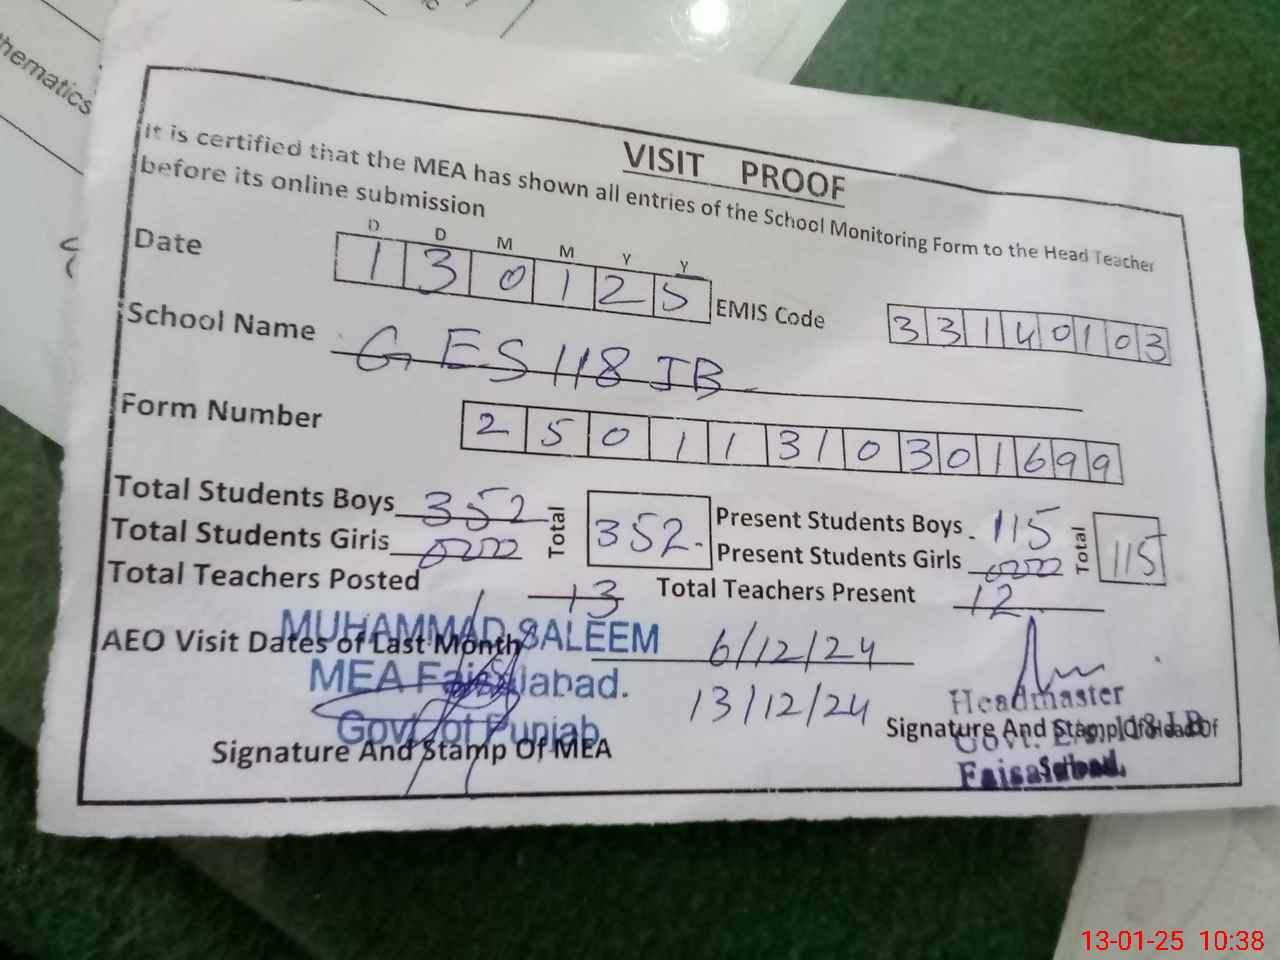 hematics
VISIT PROOF
It is certified that the MEA has shown all entries of the School Monitoring Form to the Head Teacher
before its online submission
D D M M Y Y
Date 1 3 0 1 2 5 EMIS Code 3 3 1 4 0 1 0 3
School Name G E S 118 JB
Form Number 2 5 0 1 1 3 1 0 3 0 1 6 9 9
Total Students Boys 352 Total 352 Present Students Boys 115 Total 115
Total Students Girls Present Students Girls
Total Teachers Posted 13 Total Teachers Present 12
AEO Visit Dates of Last Month 6/12/24
13/12/24
MUHAMMAD SALEEM
MEA Faisalabad.
Govt. of Punjab
Signature And Stamp Of MEA
Headmaster
Signature And Stamp Of Head Of
School
Govt. 118 J.B
Faisalabad.
13-01-25 10:38